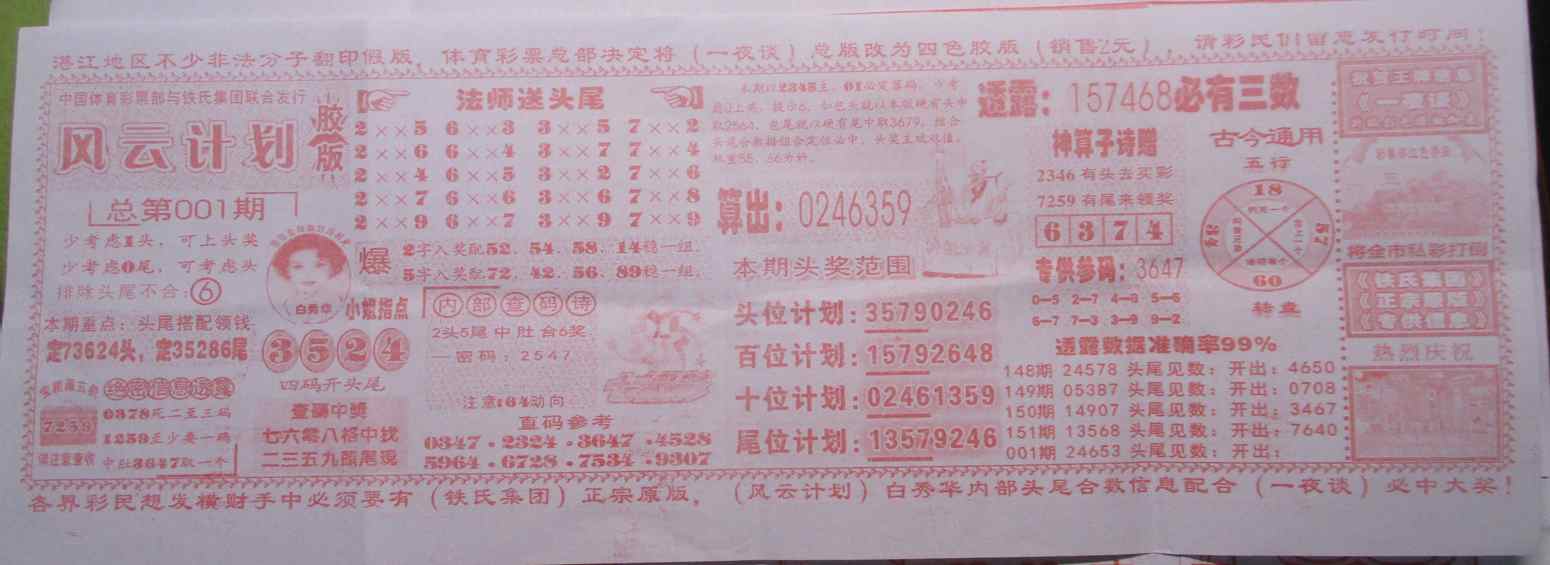 湛江地区不少非法分子翻印假版，体育彩票总部决定将（一夜谈）总版改为四色胶版（销售2元），请彩民们留意发行时间！
中国体育彩票部与铁氏集团联合发行
风云计划
胶版
总第001期
少考虑1头，可上头奖
少考虑0尾，可考虑头
排除头尾不合：⑥
本期重点：头尾搭配领钱
定73624头，定35286尾
绝密信息透露
7259
0378死二至三码
1259至少要一码
中肚3647取一个
法师送头尾
2××5 6××3 3××5 7××2
2××6 6××4 3××7 7××4
2××4 6××5 3××2 7××6
2××7 6××6 3××6 7××8
2××9 6××7 3××9 7××9
爆
2字入奖配52、54、58、14稳一组，
5字入奖配72、42、56、89稳一组，
白秀华
小姐指点
3524
四码开头尾
查码中奖
七六零八格中找
二三五九头尾现
内部查码诗
2头5尾中肚合6奖
一密码：2547
注意：64动向
直码参考
0347．2324．3647．4528
5964．6728．7534．9307
算出：0246359
本期头奖范围
头位计划：35790246
百位计划：15792648
十位计划：02461359
尾位计划：13579246
透露：157468必有三数
神算子诗赠
2346有头去买彩
7259有尾来领奖
6374
专供参码：3647
0–5 2–7 4–8 5–6
6–7 7–3 3–9 9–2
古今通用
五行
18
57
60
转盘
透露数据准确率99%
148期 24578 头尾见数：开出：4650
149期 05387 头尾见数：开出：0708
150期 14907 头尾见数：开出：3467
151期 13568 头尾见数：开出：7640
001期 24653 头尾见数：开出：
祝贺王牌信息
《一夜谈》
将全市私彩打倒
《铁氏集团》
《正宗原版》
《专供信息》
热烈庆祝
各界彩民想发横财手中必须要有（铁氏集团）正宗原版，（风云计划）白秀华内部头尾合数信息配合（一夜谈）必中大奖！